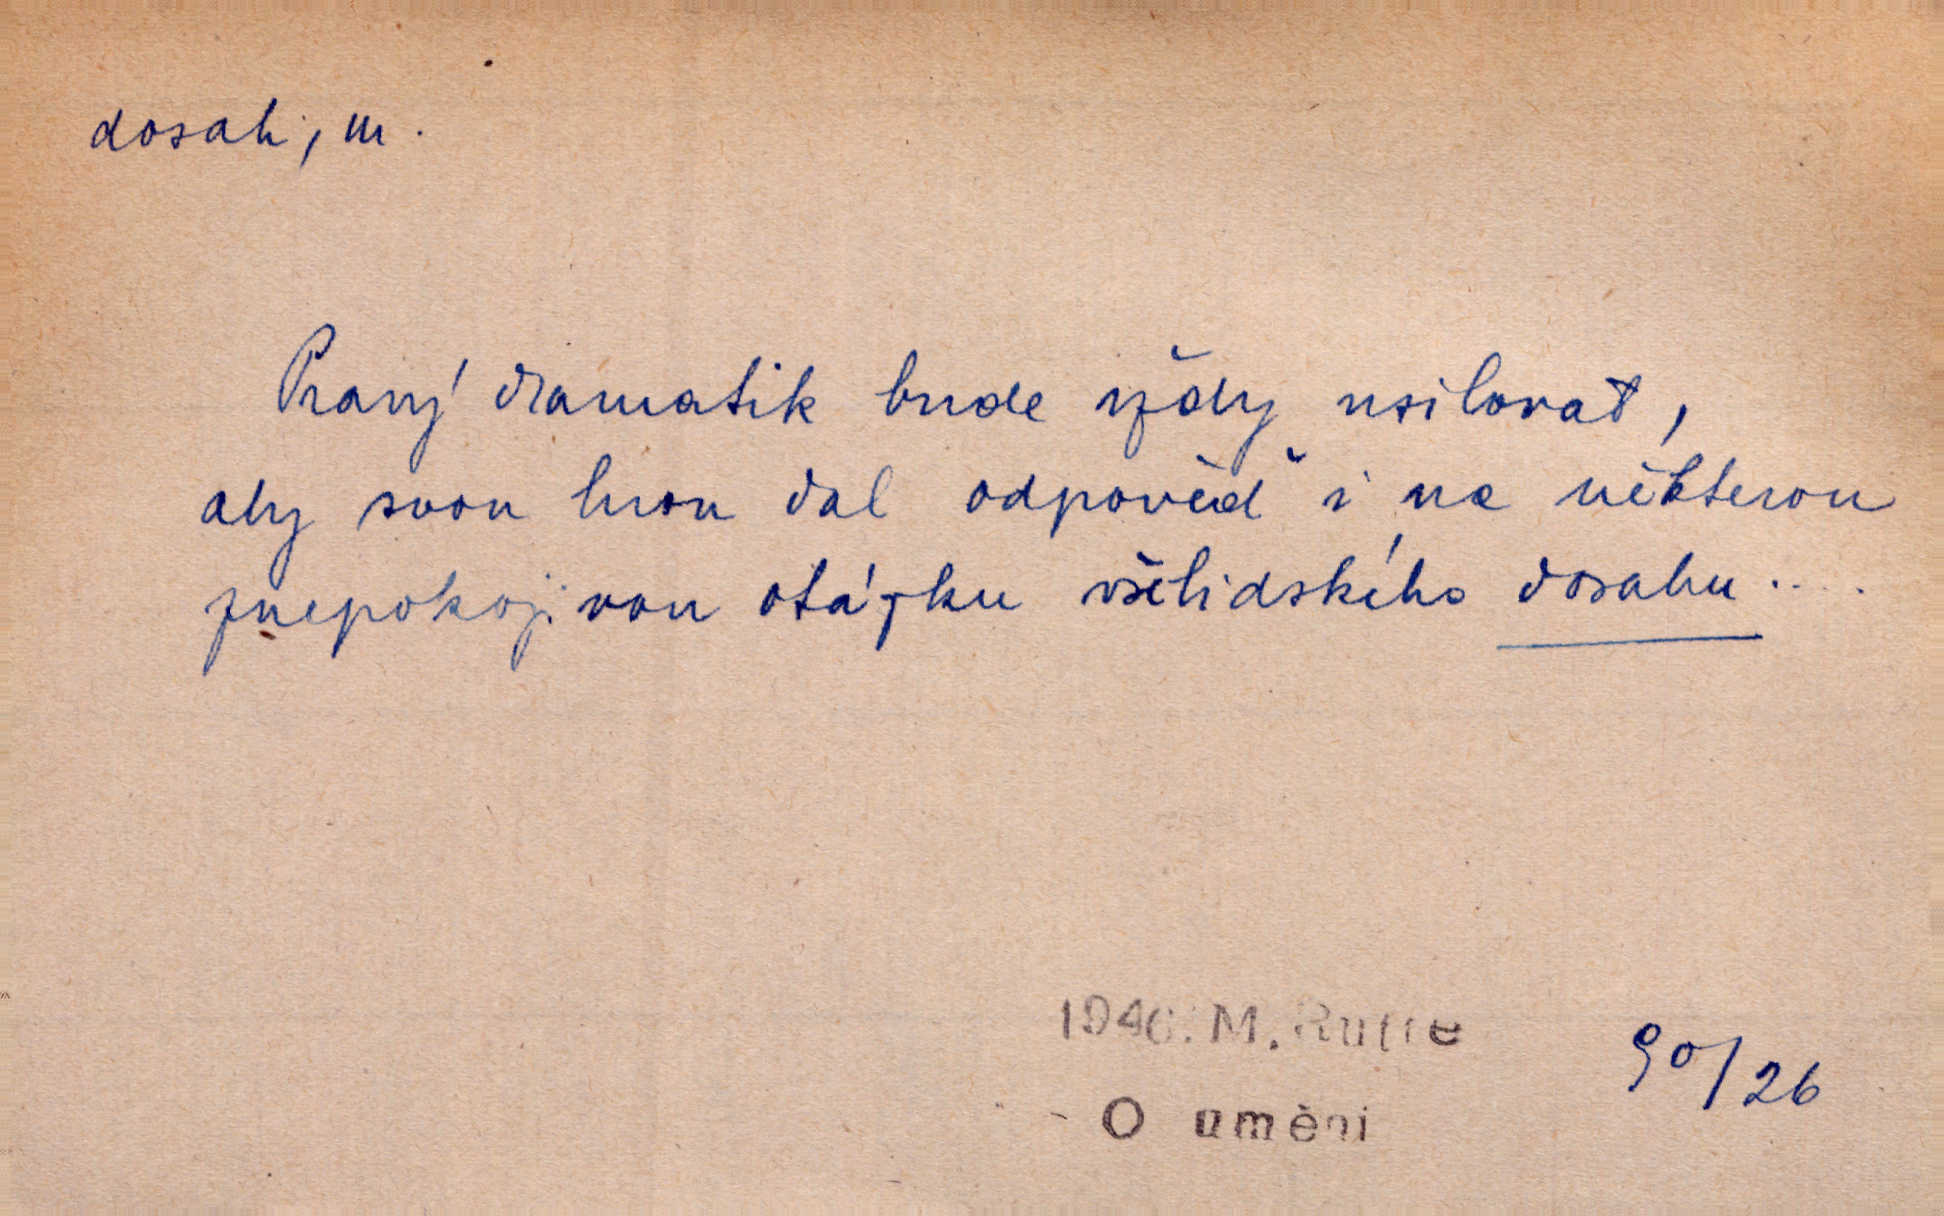 dosah, m.
Pravý dramatik bude vždy usilovat,
aby svou hrou dal odpověď i na některou
znepokojivou otázku všelidského dosahu....
1946. M. Rutte
O umění
90/26